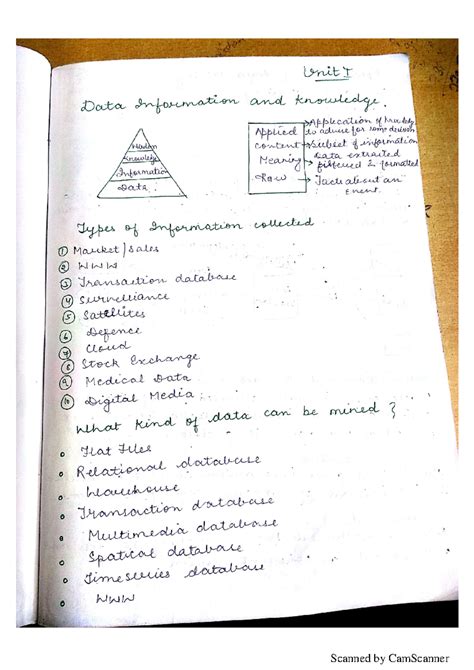 Unit I
Data Information and Knowledge.
Wisdom
Knowledge
Information
Data
Applied → Application of
to advise for some decision
Content → Subset of information
Meaning → Data extracted
& formatted
Raw → Facts about an
Event.
Types of Information collected
① Market / Sales
② WWW
③ Transaction database
④ Survelliance
⑤ Satellites
⑥ Defence
⑦ Cloud
⑧ Stock Exchange
⑨ Medical Data
⑩ Digital Media
What kind of data can be mined ?
Flat Files
Relational database
Warehouse
Transaction database
Multimedia database
Spatical database
Timeseries database
WWW
Scanned by CamScanner